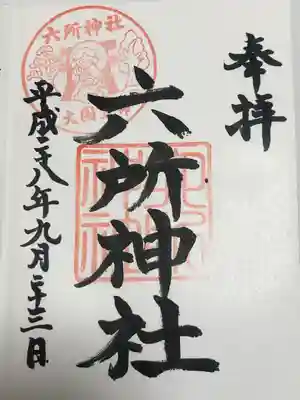 奉拝
六所神社
平成二十八年九月二十三日
六所神社